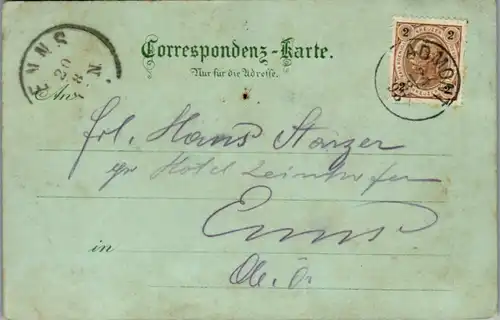 ENNS
20
8
N.
2 2
ADMONT
Correspondenz-Karte.
Nur für die Adresse.
An
Frl. Hans Starzer
Hotel
in Enns
Ob. Ö.